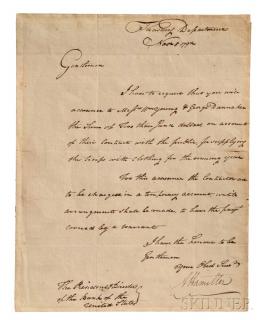 Treasury Department
Nov 1792
Gentlemen
I have to request that you will
advance to Mess Young & George Dannaker
the Sum of Ten thousand dollars on account
of their Contract with the public for supplying
the troops with Clothing for the ensuing year
For this advance the Contractors are
to be charged in a temporary account until
arrangement shall be made, to have the same
covered by a warrant
I have the honour to be
Gentlemen
Your Obed Serv
A Hamilton
The President & Directors
of the Bank of the
United States
SKINNER